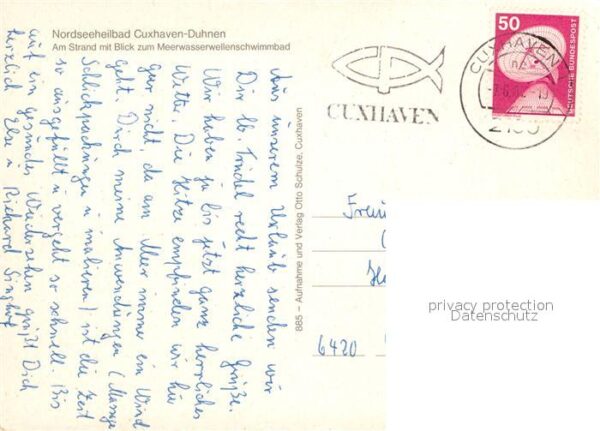 Nordseeheilbad Cuxhaven-Duhnen
Am Strand mit Blick zum Meerwasserwellenschwimmbad
CUXHAVEN
CUXHAVEN
50
DEUTSCHE BUNDESPOST
885 - Aufnahme und Verlag Otto Schulze, Cuxhaven
Aus unserem Urlaub senden wir
Dir lb. Trudel recht herzliche Grüße.
Wir haben ja bis jetzt ganz herrliches
Wetter. Die Hitze empfinden wir hier
gar nicht, da am Meer immer ein Wind
geht. Durch meine Anwendungen (Massage
Schlickpackungen u inalieren) ist die Zeit
so ausgefüllt u vergeht so schnell. Bis
auf ein gesundes Wiedersehen grüßt Dich
herzlich Else u Richard
6420
privacy protection
Datenschutz